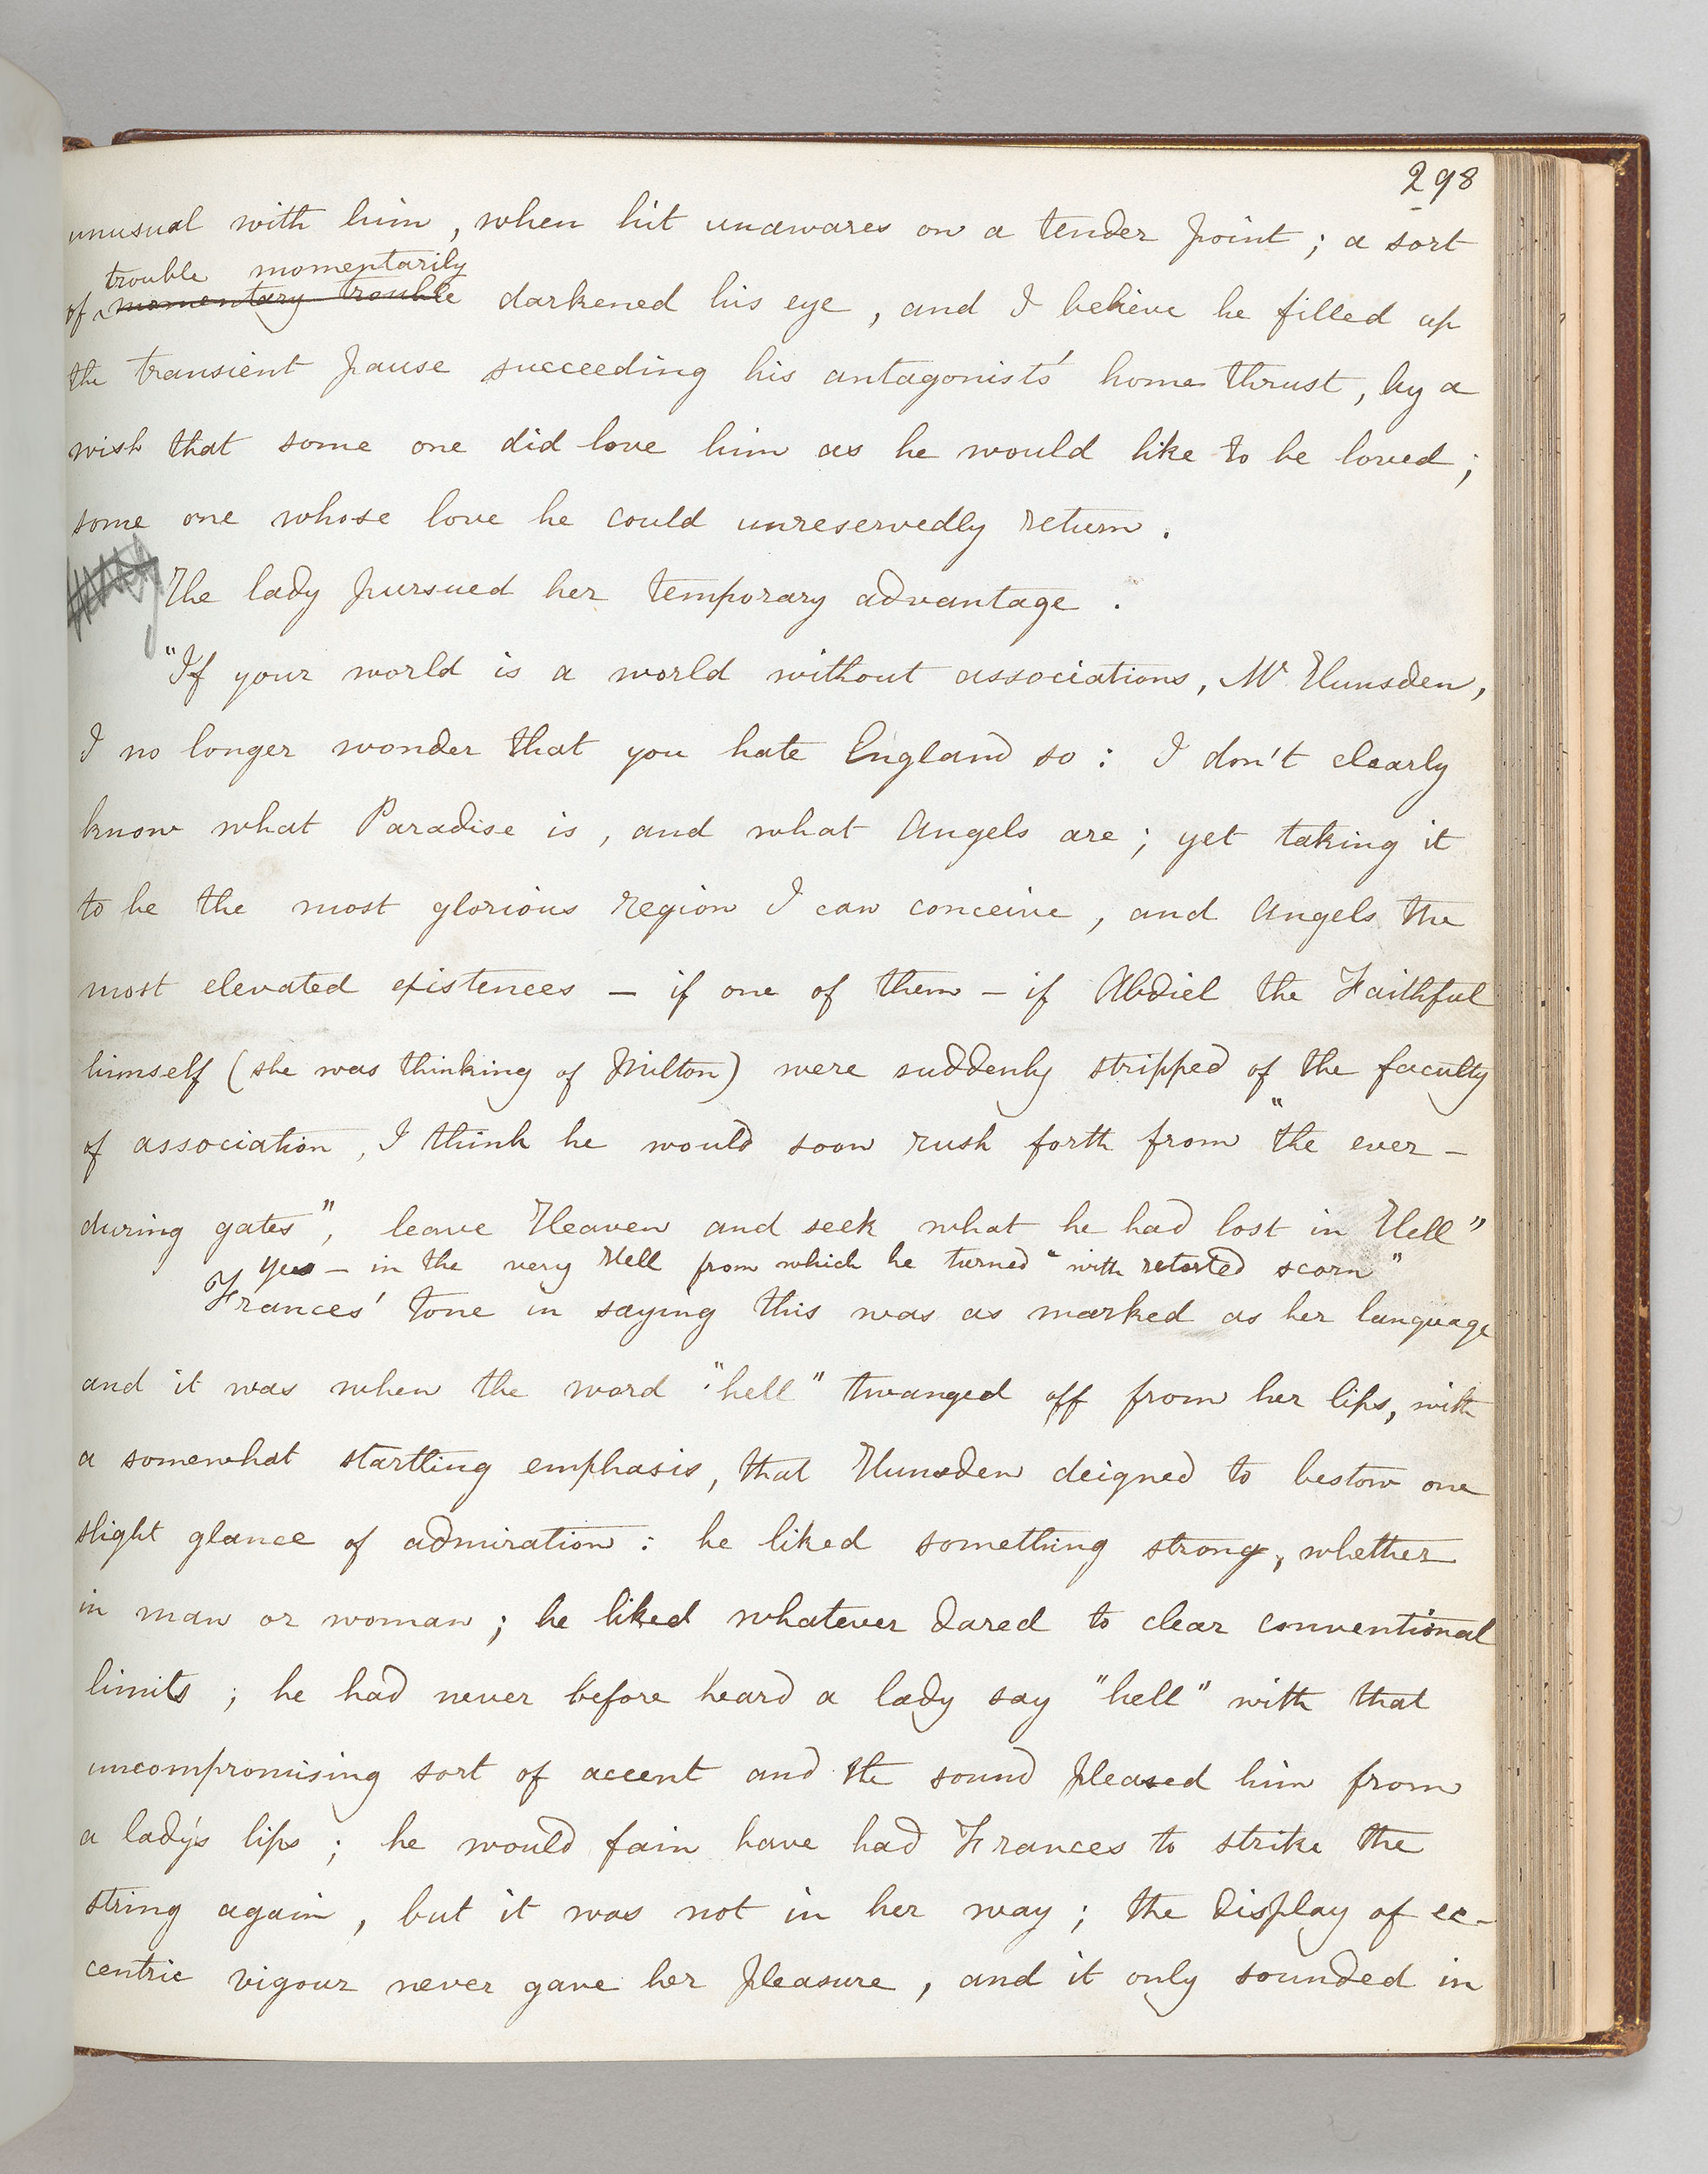 298
unusual with him, when hit unawares on a tender point; a sort
trouble momentarily
of momentary trouble darkened his eye, and I believe he filled up
the transient pause succeeding his antagonists' home thrust, by a
wish that some one did love him as he would like to be loved;
some one whose love he could unreservedly return.
The lady pursued her temporary advantage.
"If your world is a world without associations, Mr Hunsden,
I no longer wonder that you hate England so: I don't clearly
know what Paradise is, and what Angels are; yet taking it
to be the most glorious region I can conceive, and Angels the
most elevated existences – if one of them – if Abdiel the Faithful
himself (she was thinking of Milton) were suddenly stripped of the faculty
of association, I think he would soon rush forth from "the ever-
during gates", leave Heaven and seek what he had lost in Hell"
yes – in the very Hell from which he turned "with retorted scorn"
Frances' tone in saying this was as marked as her language
and it was when the word "hell" twanged off from her lips, with
a somewhat startling emphasis, that Hunsden deigned to bestow one
slight glance of admiration: he liked something strong, whether
in man or woman; he liked whatever dared to clear conventional
limits; he had never before heard a lady say "hell" with that
uncompromising sort of accent and the sound pleased him from
a lady's lips; he would fain have had Frances to strike the
string again, but it was not in her way; the display of ec-
centric vigour never gave her pleasure, and it only sounded in